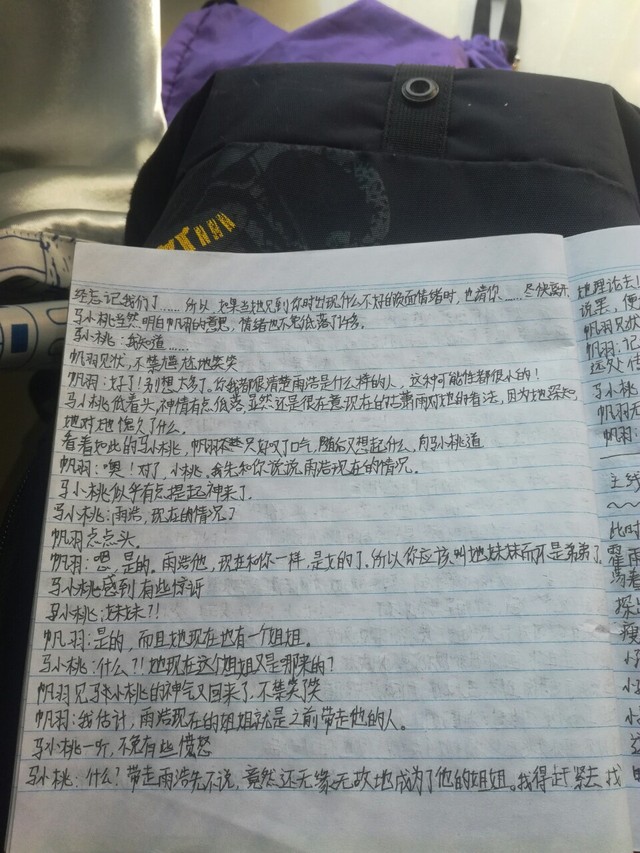 经忘记我们了……所以,如果当她见到你时出现什么不好的负面情绪时,也请你……尽快离开
马小桃当然明白帆羽的意思,情绪也不免低落了许多。
马小桃:我知道……
帆羽见状,不禁尴尬地笑笑
帆羽:好了!别想太多了,你我都很清楚雨浩是什么样的人,这种可能性都很小的!
马小桃低着头,神情有点低落,显然还是很在意现在的对她的看法,因为她深知
她对她愧欠了什么。
看着如此的马小桃,帆羽只好叹了口气,随后又想起什么,向马小桃道
帆羽:噢!对了,小桃,我先和你说说雨浩现在的情况。
马小桃似乎有点提起神来了。
马小桃:雨浩,现在的情况?
帆羽点点头,
帆羽:嗯,是的,雨浩他,现在和你一样,是女的了,所以你应该叫她妹妹而不是弟弟了
马小桃感到有些惊讶
马小桃:妹妹?!
帆羽:是的,而且她现在也有一个姐姐。
马小桃:什么?!她现在这个姐姐又是哪来的?
帆羽见马小桃的神气又回来了,不禁笑了笑
帆羽:我估计,雨浩现在的姐姐就是之前带走他的人。
马小桃一听,不免有些愤怒
马小桃:什么?带走雨浩先不说,竟然还无缘无故地成为了他的姐姐。我得赶紧去找
她理论去!
说罢,便
帆羽见状
帆羽:记
远处传
马小桃
帆羽
帆羽:
主线
此时
霍雨
看着
探出
瘦
小
小
小
这